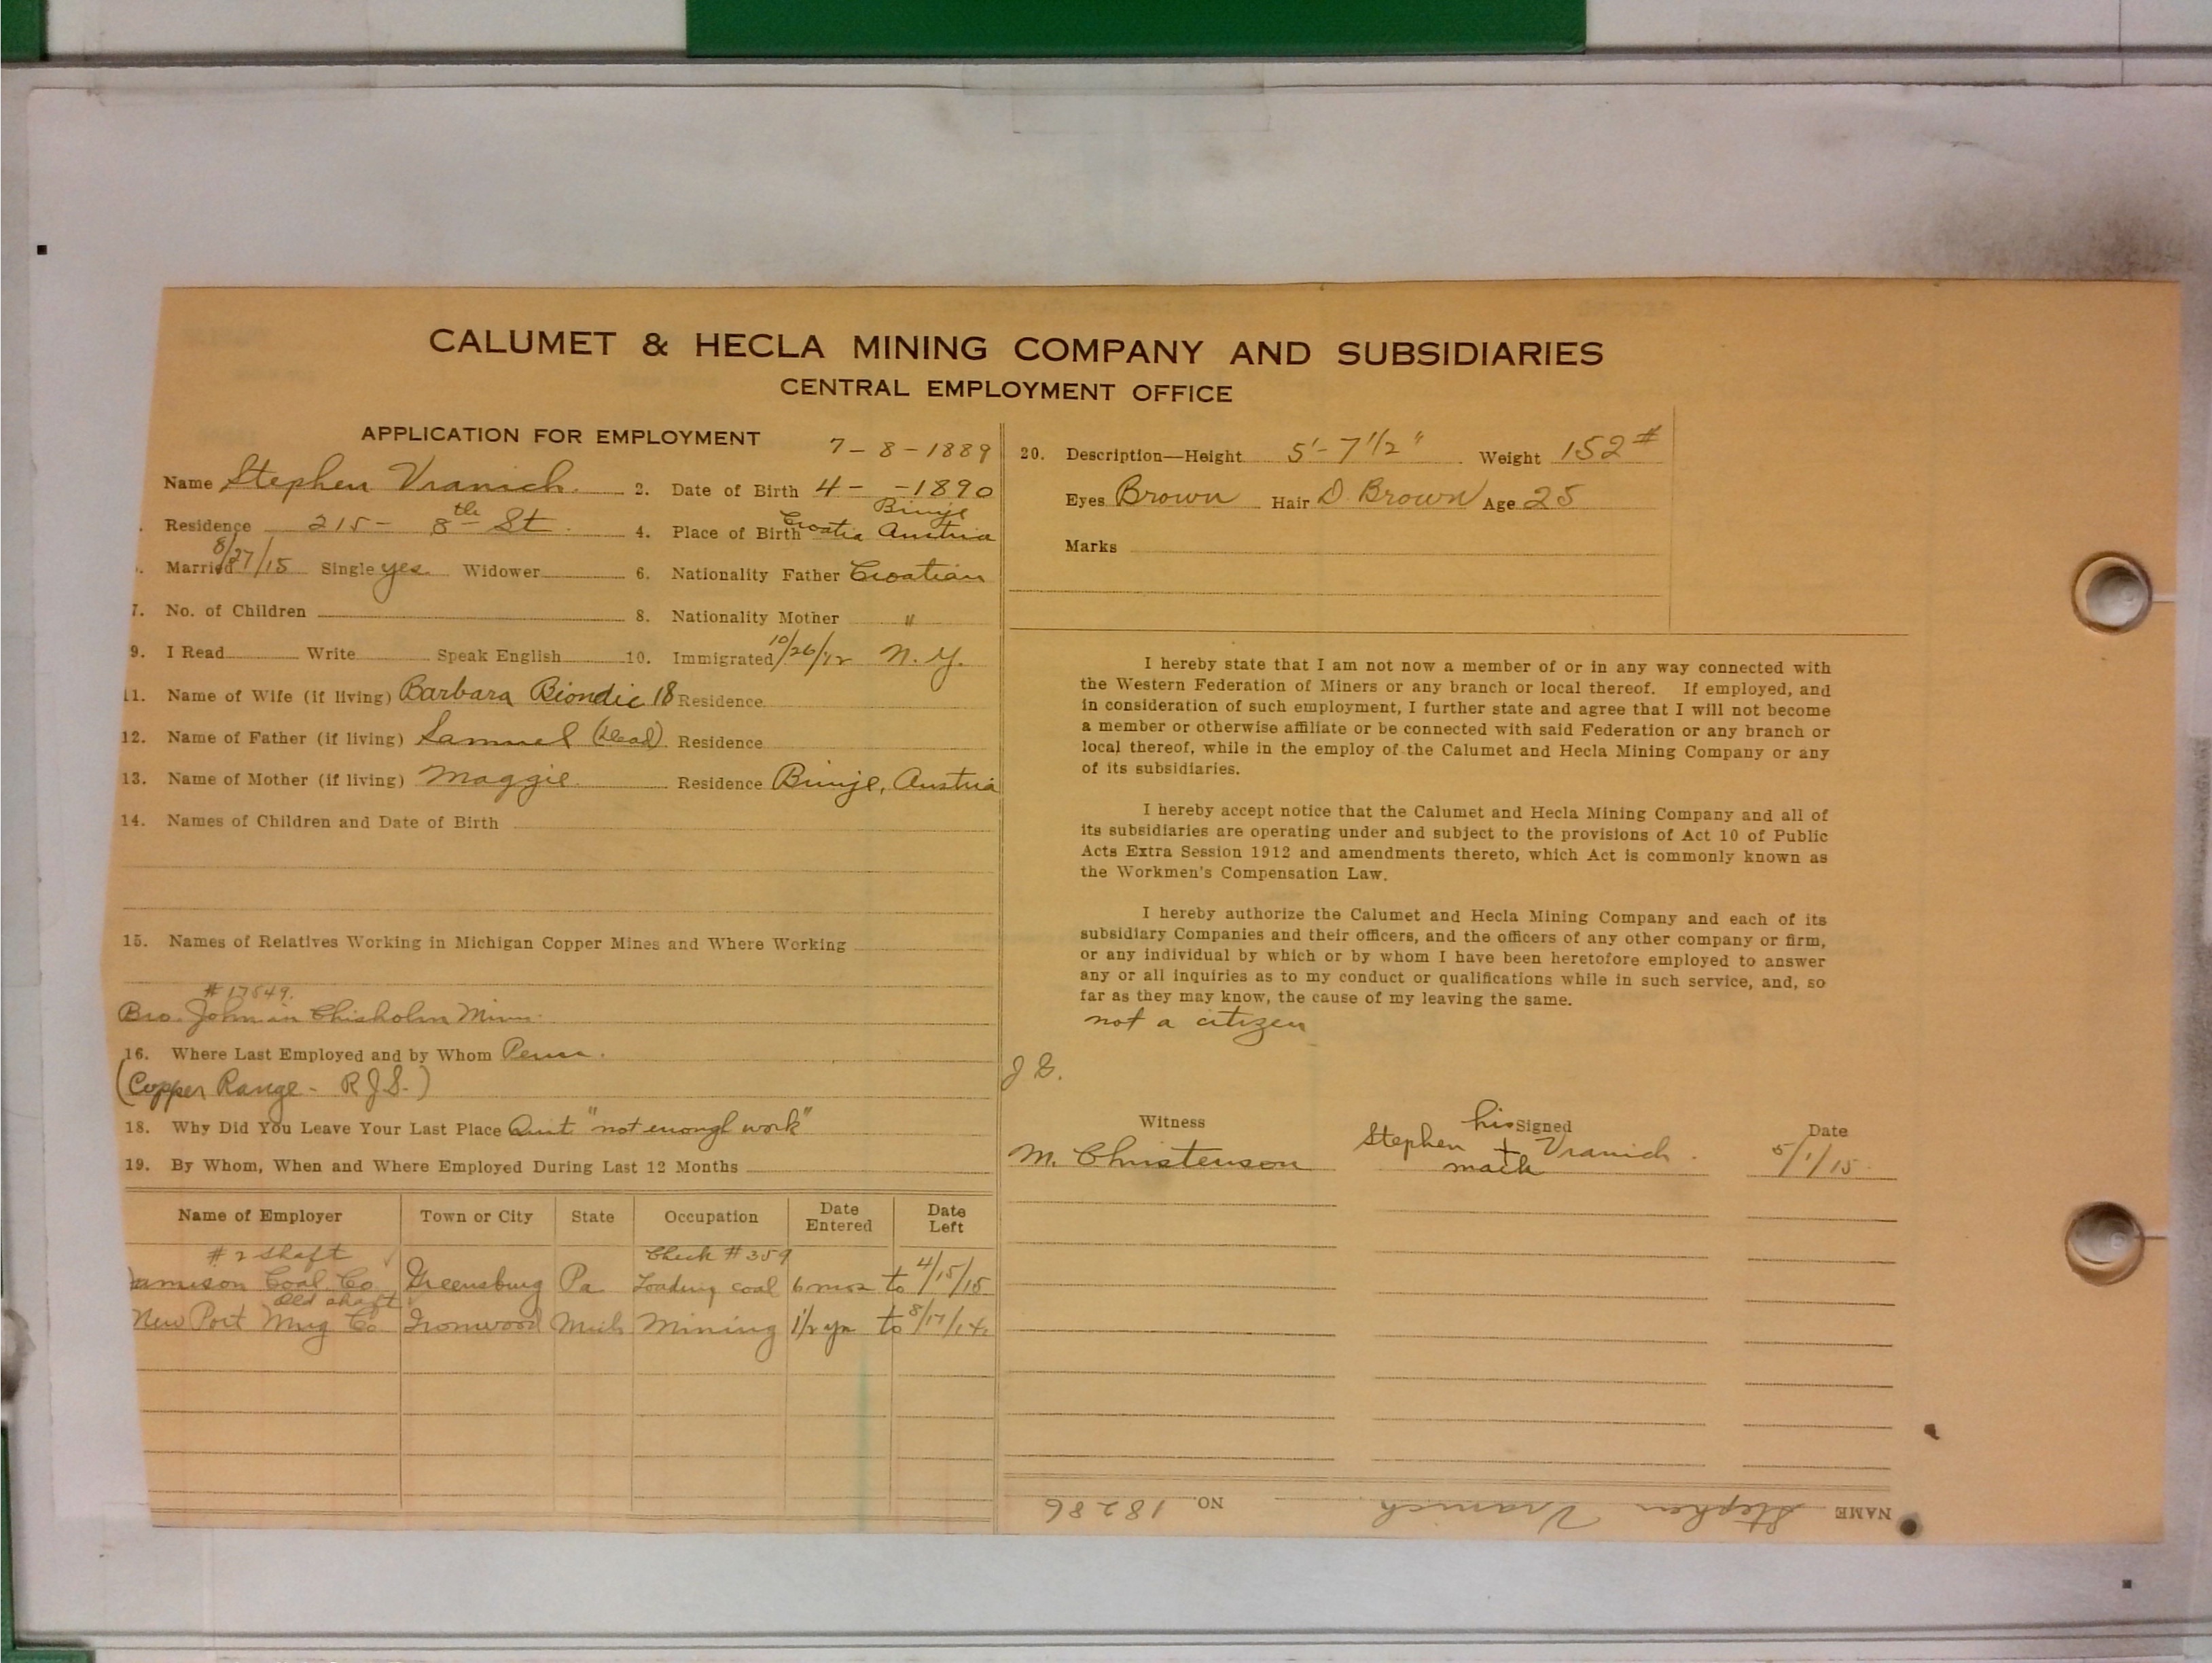 CALUMET & HECLA MINING COMPANY AND SUBSIDIARIES
CENTRAL EMPLOYMENT OFFICE
APPLICATION FOR EMPLOYMENT
7-8-1889
Name Stephen Vranich 2. Date of Birth 4- -1890
Residence 215- 8th St 4. Place of Birth Croatia Austria
Married 8/27/15 Single yes Widower 6. Nationality Father Croatian
7. No. of Children 8. Nationality Mother "
9. I Read Write Speak English 10. Immigrated 10/26/12 N.Y.
11. Name of Wife (if living) Barbara Biondic 18 Residence
12. Name of Father (if living) Samuel (Dead) Residence
13. Name of Mother (if living) Maggie Residence Austria
14. Names of Children and Date of Birth
15. Names of Relatives Working in Michigan Copper Mines and Where Working
# 17849.
Bro. John in Chisholm Minn.
16. Where Last Employed and by Whom Penn.
(Copper Range - R.J.S.)
18. Why Did You Leave Your Last Place Quit "not enough work"
19. By Whom, When and Where Employed During Last 12 Months
Name of Employer Town or City State Occupation Date Entered Date Left
# 2 shaft Check # 359
Jamison Coal Co Greensburg Pa Loading coal 6 mos to 4/15/15
Old shaft
New Port Mng Co Ironwood Mich Mining 1/2 yr to 8/17/14
20. Description—Height 5'-7 1/2" Weight 152 #
Eyes Brown Hair D. Brown Age 25
Marks
I hereby state that I am not now a member of or in any way connected with
the Western Federation of Miners or any branch or local thereof. If employed, and
in consideration of such employment, I further state and agree that I will not become
a member or otherwise affiliate or be connected with said Federation or any branch or
local thereof, while in the employ of the Calumet and Hecla Mining Company or any
of its subsidiaries.
I hereby accept notice that the Calumet and Hecla Mining Company and all of
its subsidiaries are operating under and subject to the provisions of Act 10 of Public
Acts Extra Session 1912 and amendments thereto, which Act is commonly known as
the Workmen's Compensation Law.
I hereby authorize the Calumet and Hecla Mining Company and each of its
subsidiary Companies and their officers, and the officers of any other company or firm,
or any individual by which or by whom I have been heretofore employed to answer
any or all inquiries as to my conduct or qualifications while in such service, and, so
far as they may know, the cause of my leaving the same.
not a citizen
Witness Signed Date
his
M. Christenson Stephen + Vranich 5/1/15
mark
NAME Stephen Vranich NO. 18286